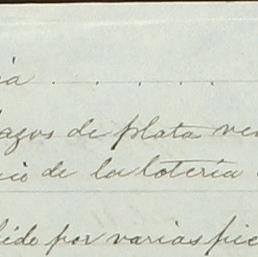 ia . . . . . .
lazos de plata ven
cio de la lotería
bido por varias pie